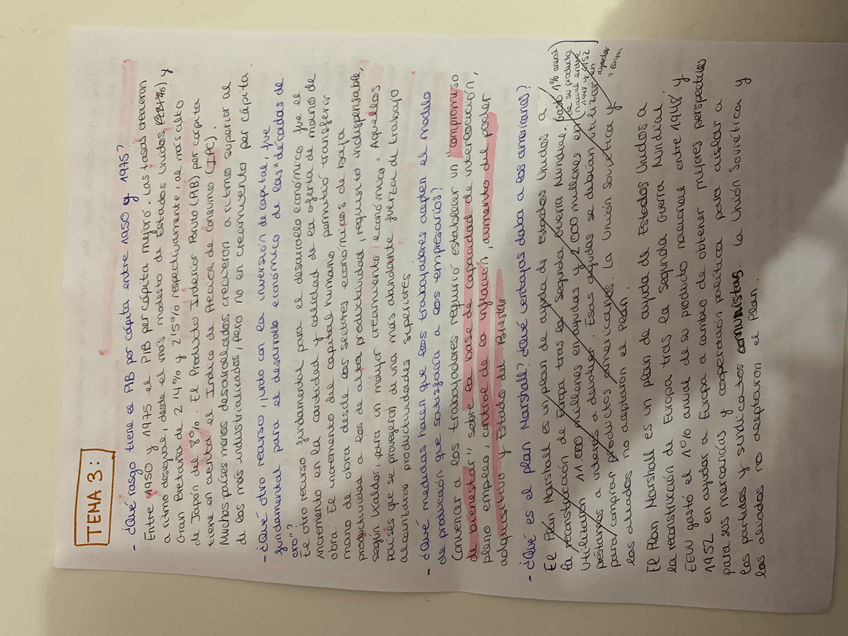 TEMA 3:
- ¿Qué rasgo tiene el PIB per cápita entre 1950 y 1975?
Entre 1950 y 1975 el PIB per cápita mejoró. Las tasas crecieron
a ritmo desigual, desde el más modesto de Estados Unidos y
Gran Bretaña de 2'14% y 2'15% respectivamente, al más alto
de Japón del 8%. El Producto Interior Bruto (PIB) per cápita
tiene en cuenta el Índice de Precios de Consumo (IPC).
Muchos países menos desarrollados crecieron a ritmo superior al
de los más industrializados, pero no en crecimiento per cápita.
- ¿Qué otro recurso, junto con la inversión de capital, fue
fundamental para el desarrollo económico de las "décadas de
oro"?
El otro recurso fundamental para el desarrollo económico fue el
incremento en la cantidad y calidad de la oferta de mano de
obra. El incremento del capital humano permitió transferir
mano de obra desde los sectores económicos de baja
productividad a los de alta productividad, requisito indispensable,
según Kaldor, para un mayor crecimiento económico. Aquellos
países que se proveyeron de una más abundante fuerza de trabajo
alcanzaron productividades superiores
- ¿Qué medidas hacen que los trabajadores acepten el modelo
de producción que satisfacía a los empresarios?
Convencer a los trabajadores requirió establecer un "compromiso
de bienestar" sobre la base de capacidad de interlocución,
pleno empleo, control de la inflación, aumento del poder
adquisitivo y Estado del Bienestar
- ¿Qué es el plan Marshall? ¿Qué ventajas daba a los americanos?
El Plan Marshall es un plan de ayuda de Estados Unidos a
la reconstrucción de Europa tras la Segunda Guerra Mundial.
Utilizaron 11.000 millones en ayudas y 2.000 millones en
préstamos a interés a devolver. Esas ayudas se debían utilizar en
para comprar productos americanos. La Unión Soviética y
los aliados no aceptaron el Plan.
El Plan Marshall es un plan de ayuda de Estados Unidos a
la reconstrucción de Europa tras la Segunda Guerra Mundial
EEUU gastó el 1% anual de su producto nacional entre 1948 y
1952 en ayudar a Europa a cambio de obtener mejores perspectivas
para sus mercancías y cooperación política para aislar a
los partidos y sindicatos comunistas. La Unión Soviética y
los aliados no aceptaron el Plan.